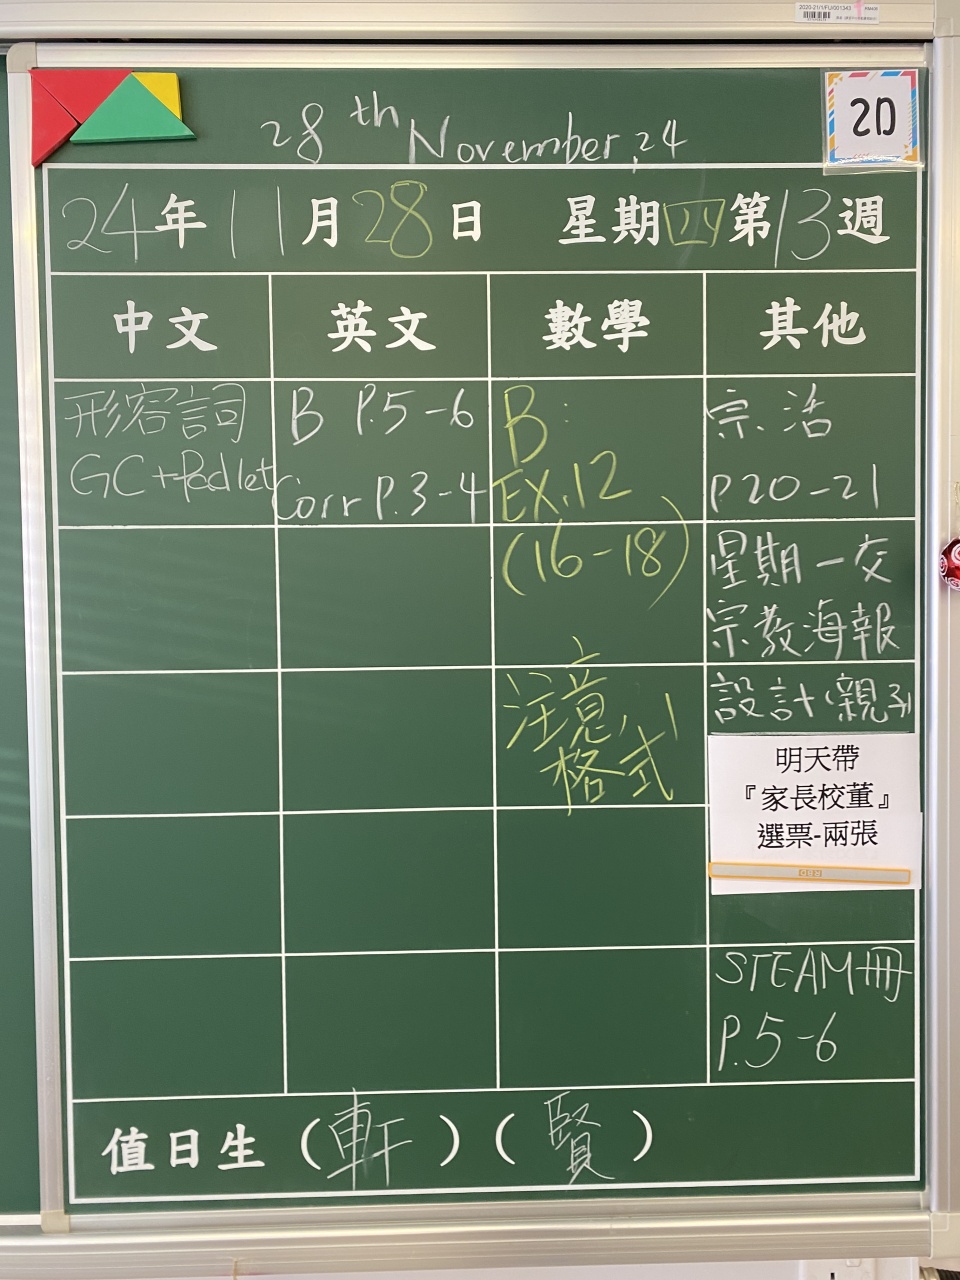 2020-21/1/FU/001343
2D
28th November, 24
24年11月28日 星期四第13週
中文
英文
數學
其他
形容詞
GC+Padlet
B P.5-6
Corr P.3-4
B:
EX.12
(16-18)
注意
格式
宗.活
P20-21
星期一交
宗教海報
設計(親子)
明天帶
『家長校董』
選票-兩張
STEAM冊
P.5-6
值日生(軒)(賢)